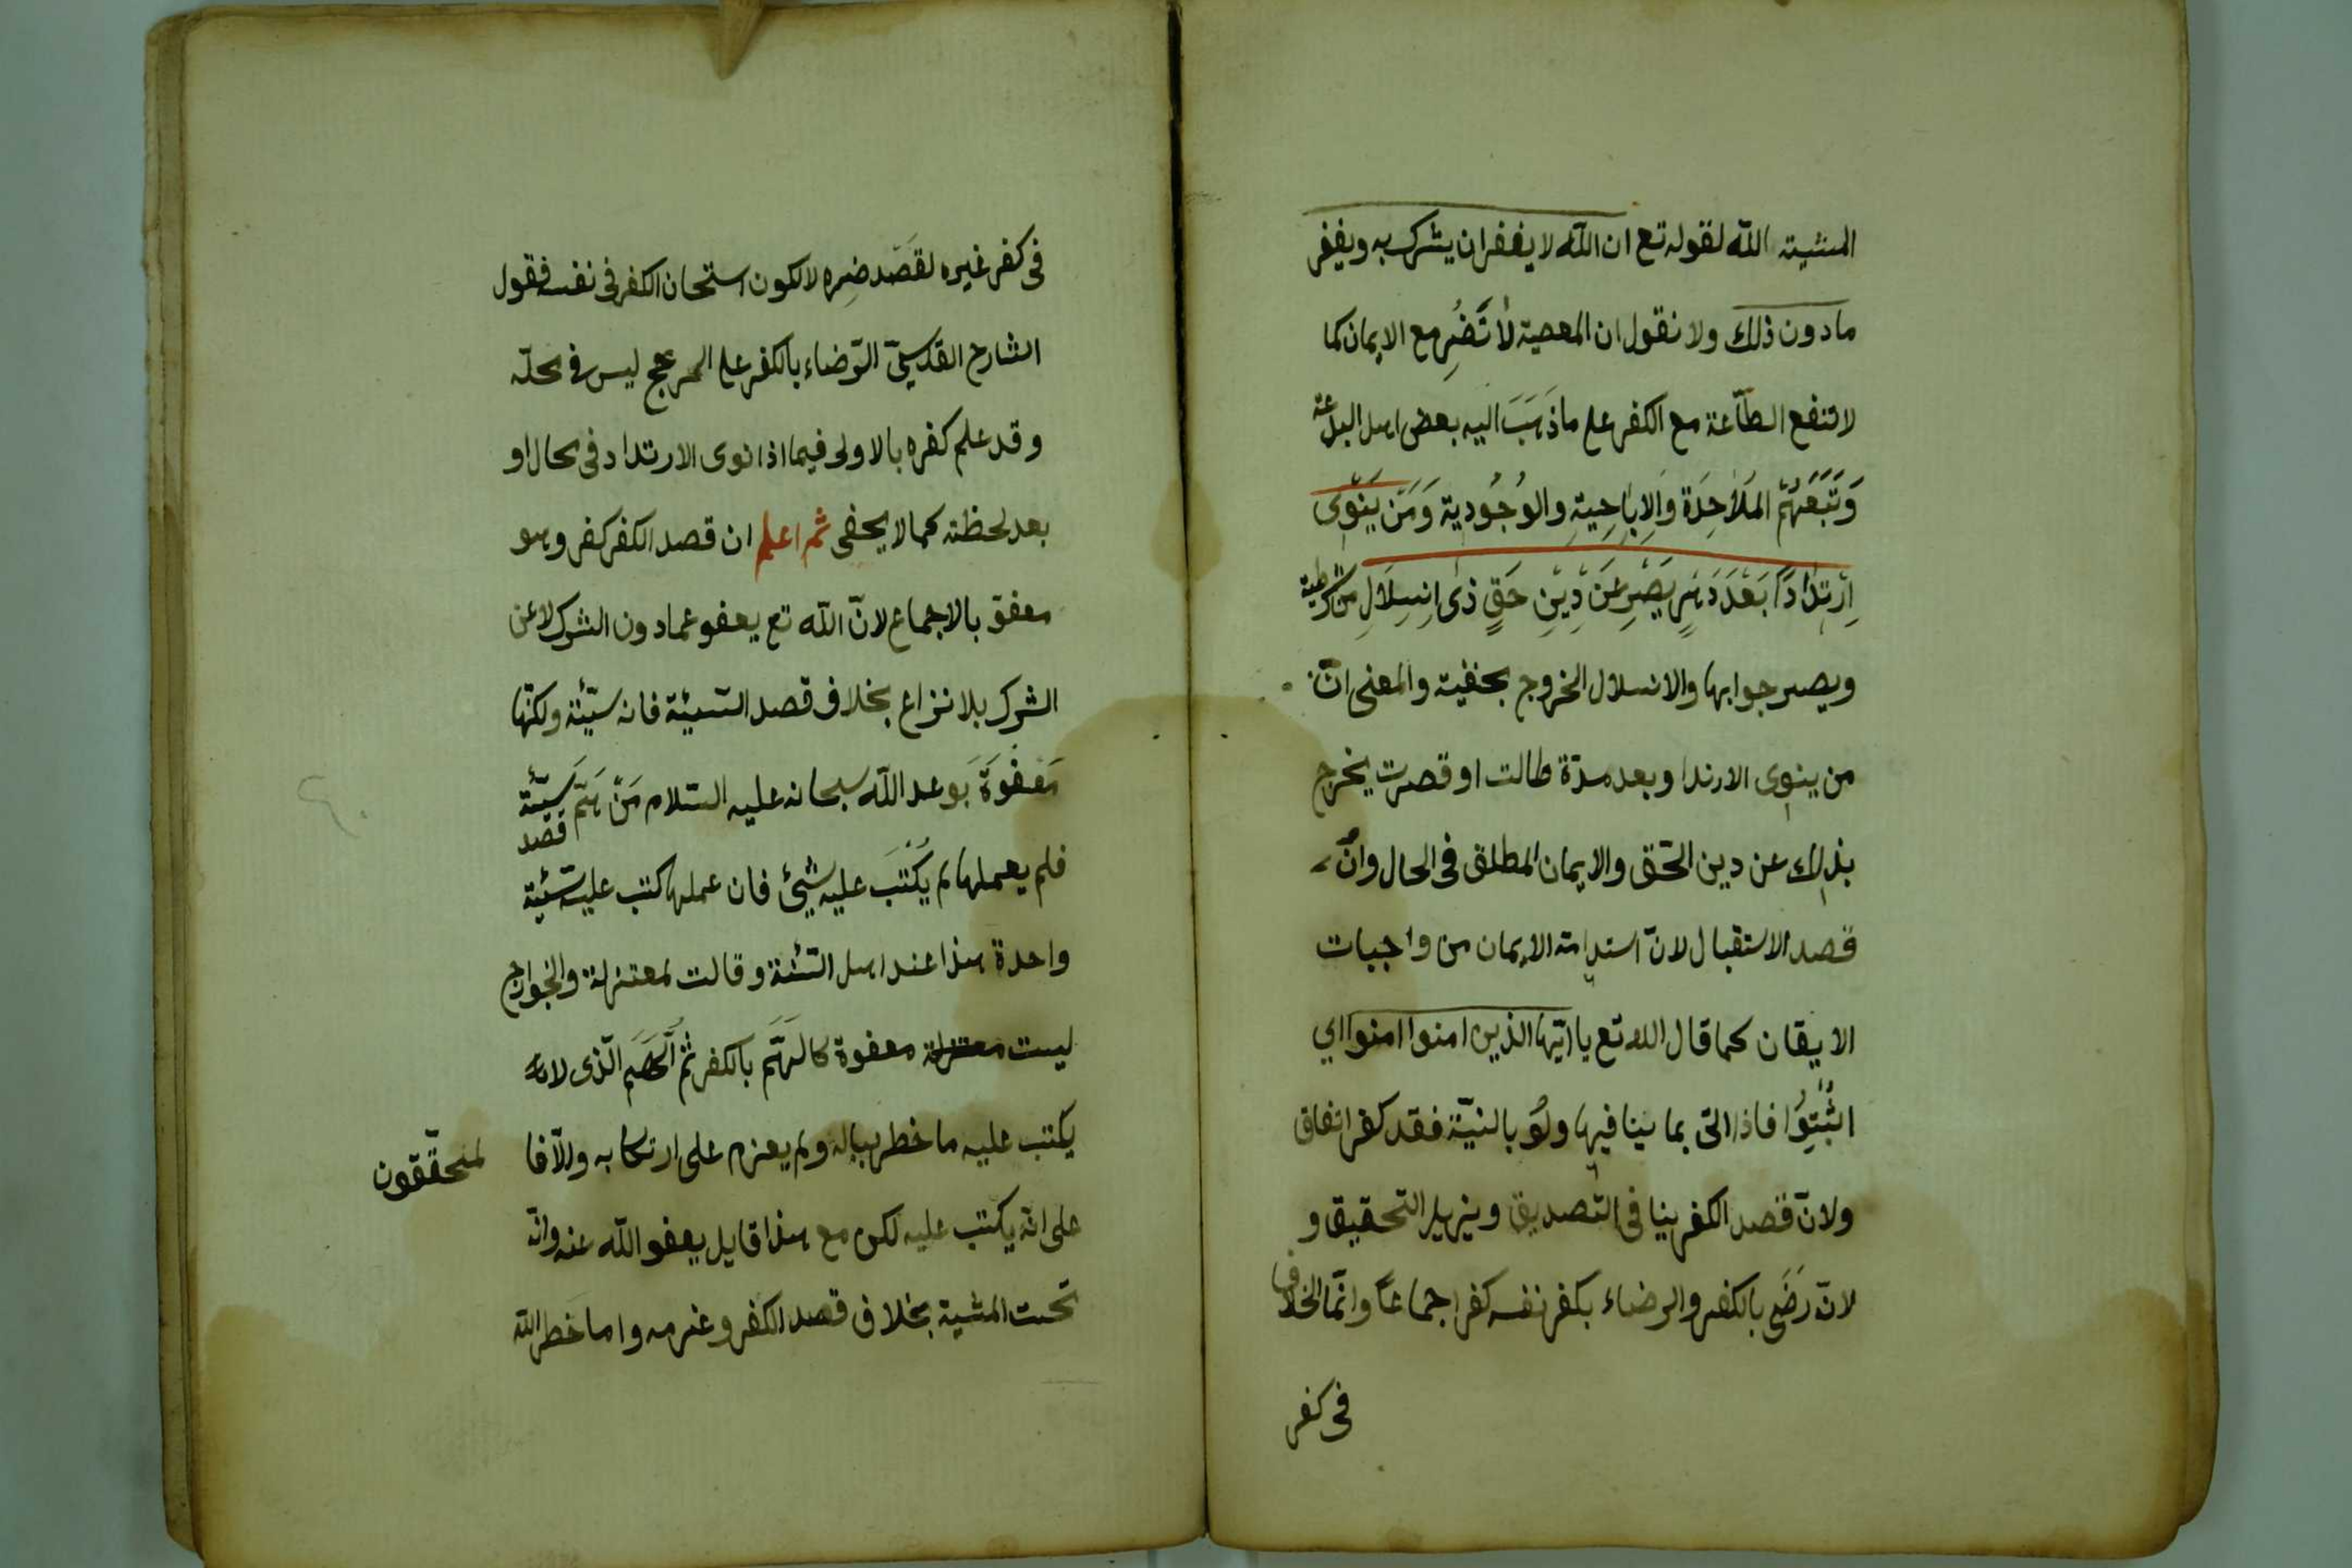 المشية الله لقوله تع ان الله لا يغفر ان يشرك به ويغفر
مادون ذلك ولا نقول ان المعصية لا تَضُرِ مع الايمان كما
لا تنفع الطّاعة مع الكفر على ما ذَهَبَ اليه بعض اهل البدعة
وَتَبَعَهُمْ المَلَاحِدَة وَالاِبَاحِيةِ والوُجُودية وَمَنْ يَنْوِى
اِرْتِدَادًا بَعْدَ دَهْرٍ يَصِرِ عَنْ دِيْنِ حَقٍ ذٰى اِنسِلَالِ من شرطية
ويصر جوابها والانسلال الخروج بخفية والمعنى انّ
من ينوى الارتدا وبعد مدّة طالت او قصرت يخرج
بذلك عن دين الحّق والايمان المطلق فى الحال وانْ
قصد الاستقبال لانّ استدامة الايمان من واجبات
الايقان كما قال الله تع يا ايّها الذين امنوا امنوا اي
اثْبُتُوا فاذا اتى بما ينافيها ولَوْ بالنيّة فقد كفر اتفاق
ولانّ قصد الكفر ينا فى التصديق ويزيل التحقيق و
لانّ رَضَى بالكفر والرضاء بكفر نفسه كفر اجماعاً وانّما الخلاف
فى كفر
فى كفر غيره لقَصْد ضِره لا لكون استحان الكفر فى نفسه فقول
الشارح القدسىّ الرّضاء بالكفر على ليس فى محلّه
وقد علم كفره بالاولى فيما اذا نوى الارتداد فى محال او
بعد لحظة كما لا يخفى ثم اعلم ان قصد الكفر كفر وهو
معفق بالاجماع لانّ الله تع يعفو عمادون الشرك لا عن
الشرك بلا نزاع بخلاف قصد السّيئة فانه سيّئة ولكنّها
مَعفُوَةٌ بَوعد الله سبحانه عليه السّلام مَنْ هَمّ سَيّئة
قصد
فلم يعملها لم يُكْتَبَ عليه شيئ فان عملها كتب عليه سّيئة
واحدة هذا عند اهل السّنّة وقالت لمعتزلة والخوارج
ليست معتزلة معفوة كالَهّمَ بالكفر ثمّ الَهَم الّذى لانه
يكتب عليه ما خطر بباله ولم يعزم على ارتكابه والّا فا
لمحقّقون
على انه يكتب عليه لكن مع هذا قايل يعفو الله عنه وانّه
تحت المشية بخلاف قصد الكفر وعزمه واما خَطر الله